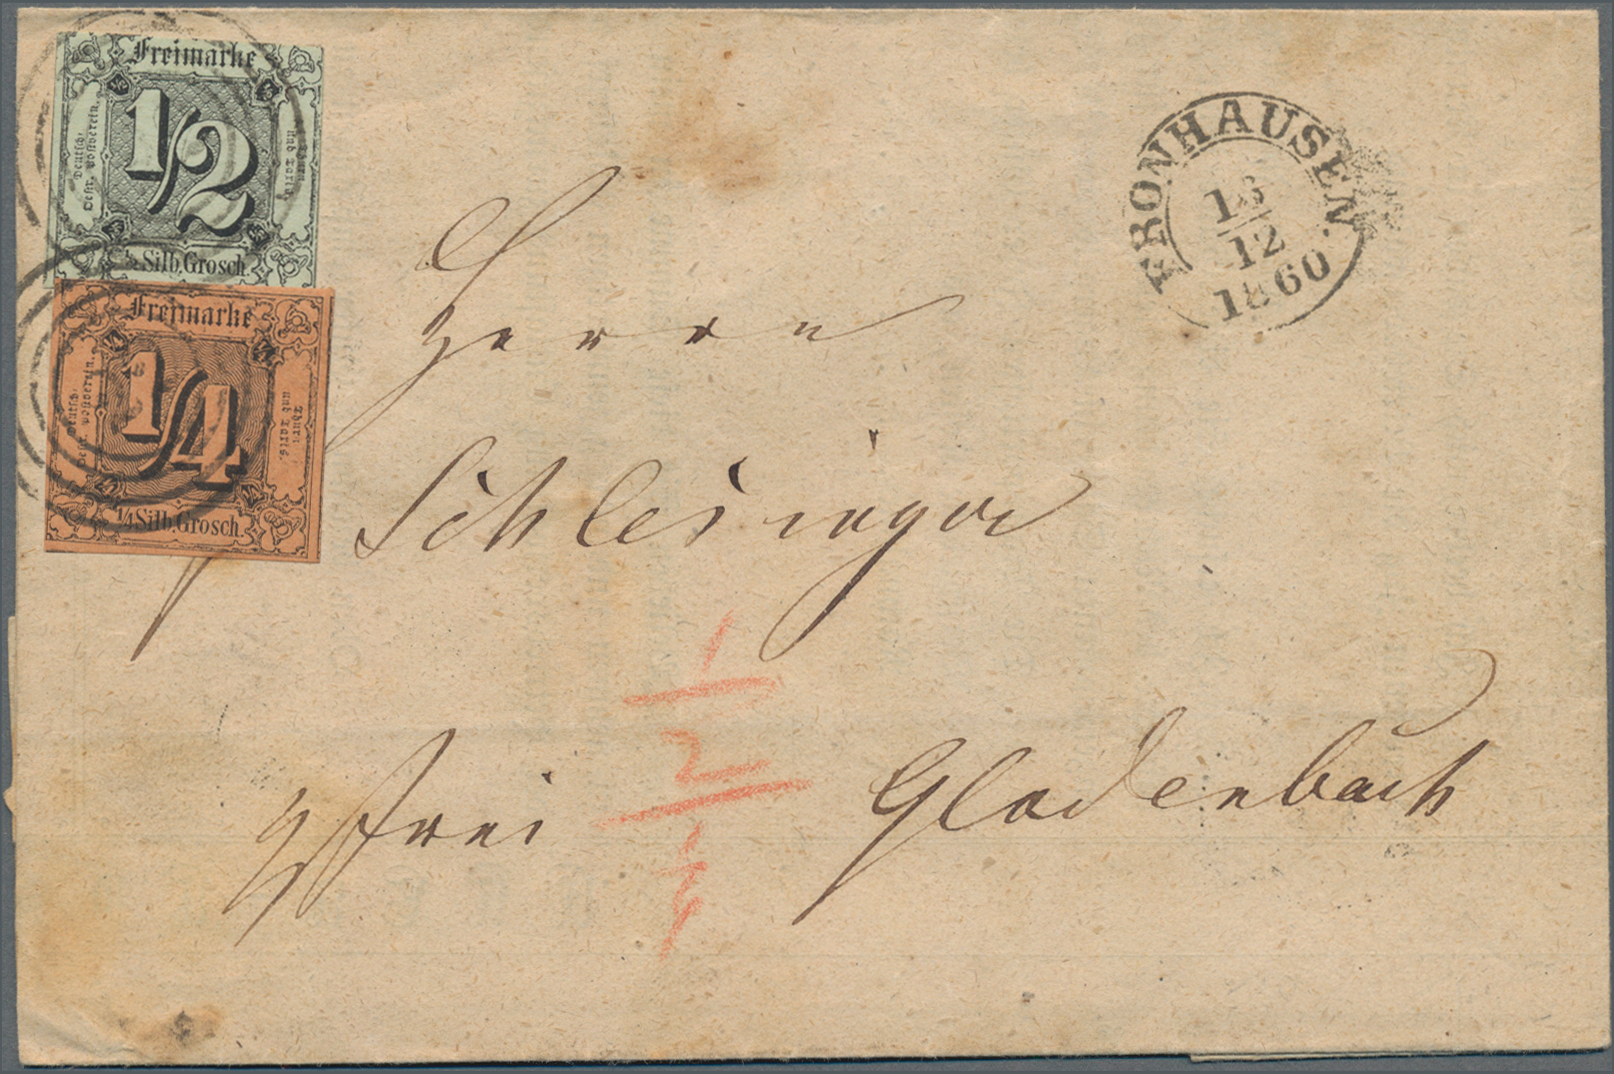 Freimarke
Deutsch-
Oestr. Postverein.
1/2
Thurn
und Taxis.
½ Silb. Grosch.
Freimarke
Deutsch-
Oestr. Postverein.
1/4
Thurn
und Taxis.
¼ Silb. Grosch.
FRONHAUSEN.
16
12
1860
Herrn
Schlesinger
frei
Gladenbach
1
2